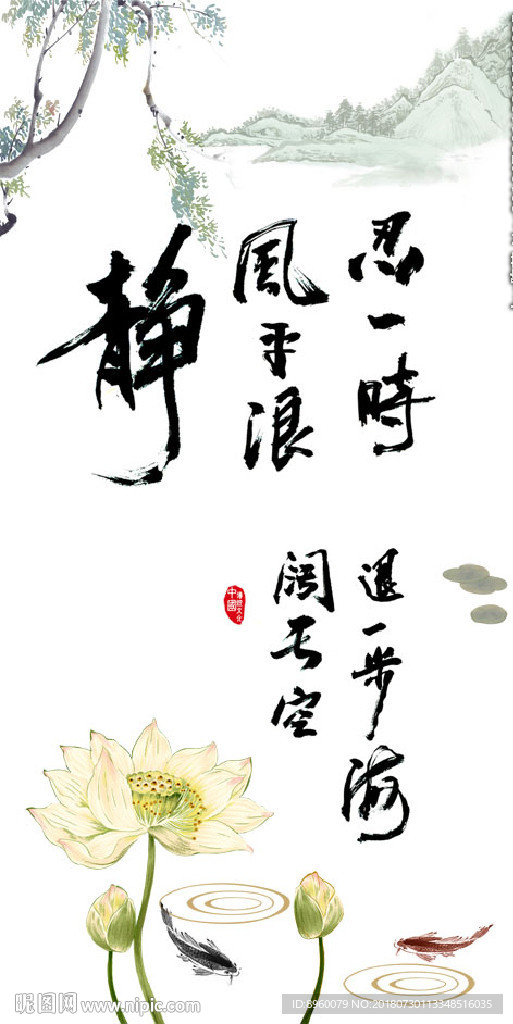 忍一時
風平浪
静
退一步海
阔天空
中國
傳統文化
昵图网 www.nipic.com
ID:8960079 NO:20180730113348516035